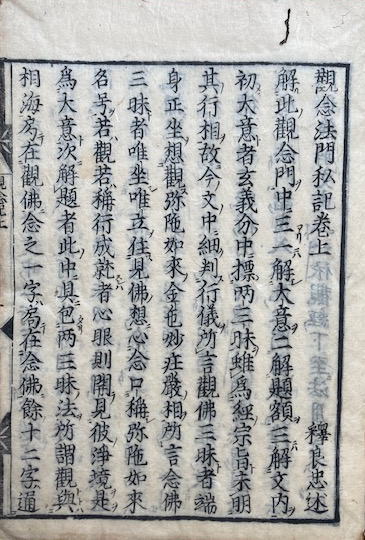 觀念法門私記卷上 釋良忠述
解此觀念門中三一解大意二解題額三解文内
初大意者玄義分中標兩三昧雖爲經宗旨未明
其行相故今文中細判行儀所言觀佛三昧者端
身正坐想觀弥陁如來金色妙荘嚴相所言念佛
三昧者唯坐唯立住見佛想心念口稱弥陁如來
名号若觀若稱行成就者心眼則開見彼淨境是
爲大意次解題者此中具包兩三昧法所謂觀與
相海房在觀佛念之一字爲在念佛餘十二字通